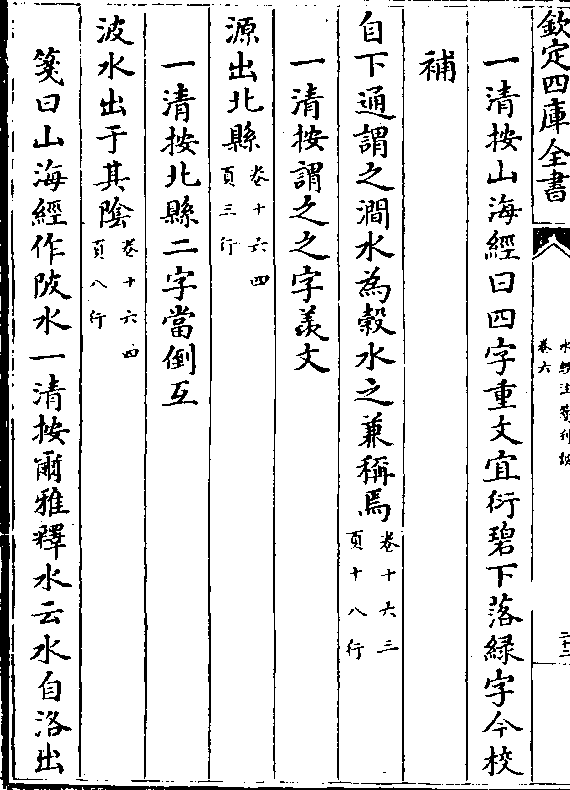 欽定四庫全書
水經注箋刊誤
卷六
二十二
一清按山海經曰四字重文宜衍碧下落緑字今校
補
自下通謂之澗水為榖水之兼稱焉卷十六三頁十八行
一清按謂之之字羨文
源出北縣卷十六四頁三行
一清按北縣二字當倒互
波水出于其陰卷十六四頁八行
箋曰山海經作陂水一清按爾雅釋水云水自洛出